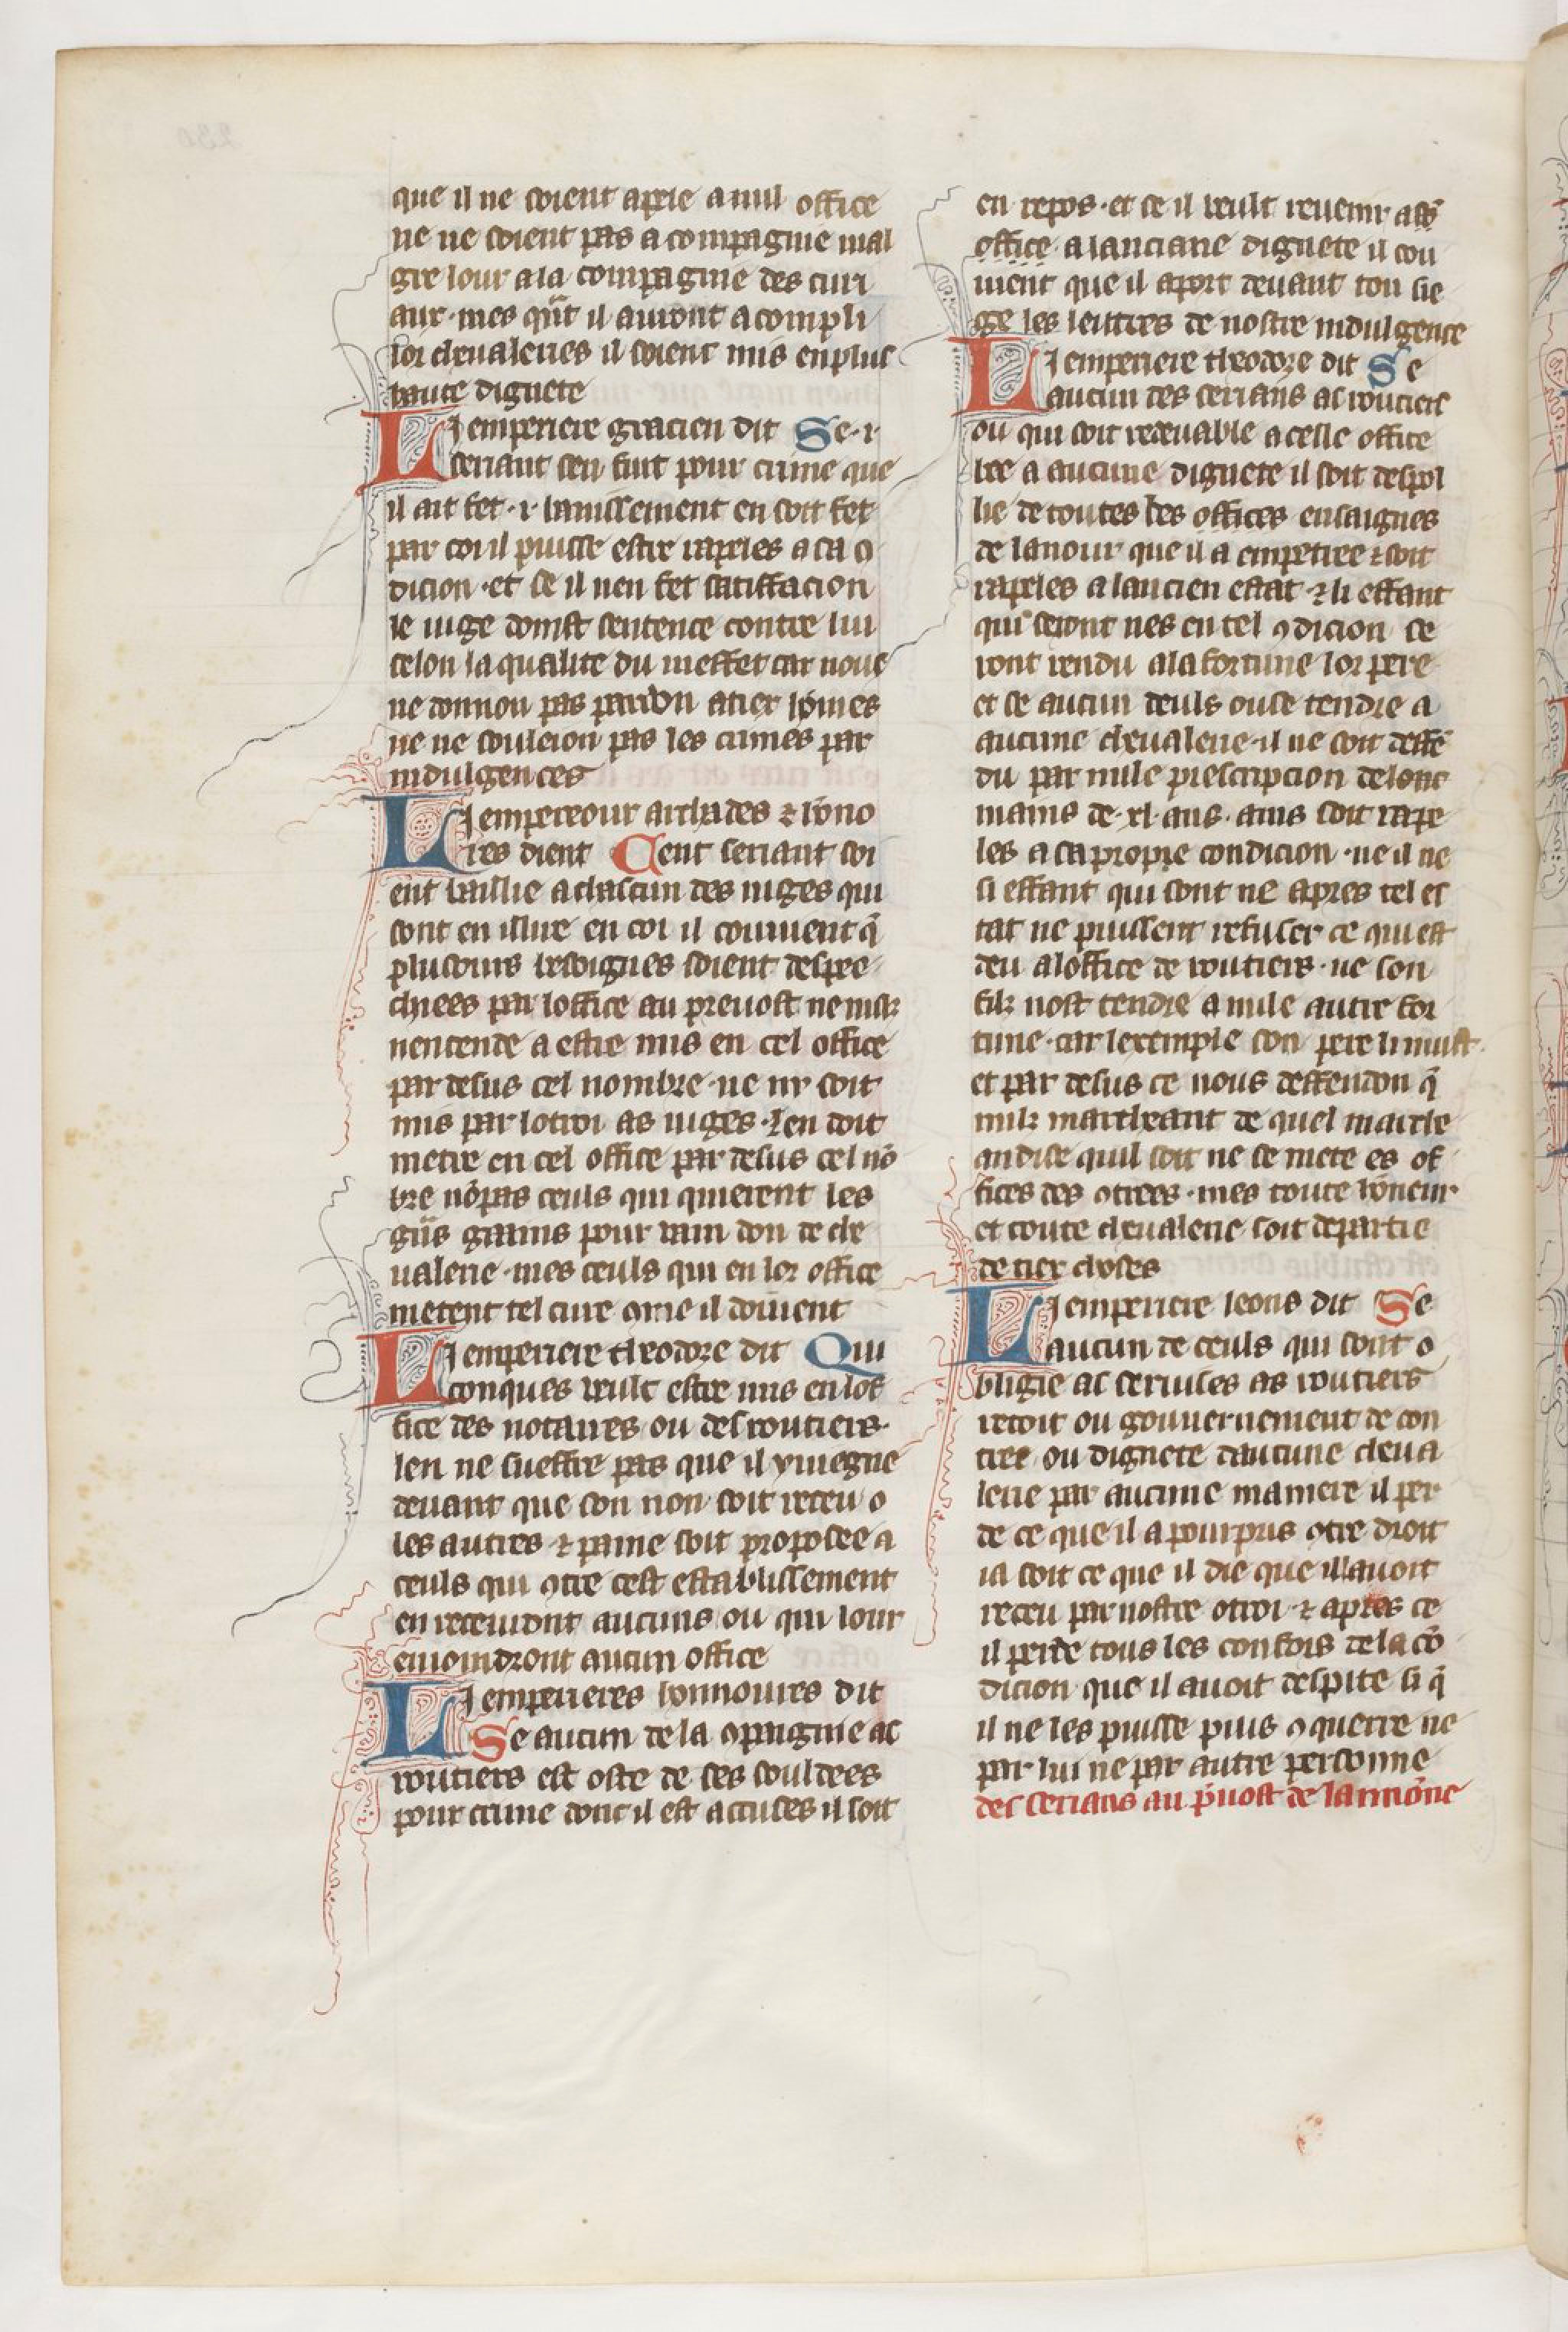 que il ne soient apele a nul office
ne ne soient pas acompagnie mal
gre lour a la compagnie des curi
aux · mes qnt il auront acompli
lor cheualeries il soient mis en plus
haute dignete
Li emperiere gracien dit Se · i ·
seriant sen fuit pour crime que
il ait fet · i · banissement en soit fet
par coi il puisse estre rapeles a sa con
dicion · et se il nen fet satiffacion
le iuge doinst sentence contre lui
selon la qualite du meffet car nous
ne donnon pas pardon a tiex homes
ne ne souleion pas les crimes par
indulgences
Li empereour archades ⁊ hono
res dient Cent seriant soi
ent baillie a chascun des iuges qui
sont en illire en coi il conuient q̃
plusours besoignes soient despee
chiees par loffice au preuost ne nulz
nentende a estre mis en cel office
par desus cel nombre · ne ni soit
mis par lotroi as iuges · Len doit
metre en cel office par desus cel nõ
bre nõ pas ceuls qui quierent les
grãs graains pour vain don de che
ualerie · mes ceuls qui en lor office
metent tel cure ꝯme il doiuent
Li emperiere theodore dit Qui
conques veult estre mis en lof
fice des notaires ou des routiers ·
len ne sueffre pas que il y uiegne
deuant que son non soit receu o
les autres ⁊ paine soit proposee a
ceuls qui ꝯtre cest establissement
en receuront aucuns ou qui lour
enioindront aucun office
Li emperieres honnoures dit
Se aucun de la ꝯpaignie as
routiers est oste de ses souldees
pour crime dont il est accuses il soit
en repos · et se il veult reuenir a sõ
office a lanciane dignete il con
uient que il aport deuant ton sie
ge les lettres de nostre indulgence
Li emperiere theodore dit Se
aucun des serians as routiers
ou qui soit redeuable a celle office
bee a aucune dignete il soit despoi
lie de toutes les offices ensaignes
de lanour que il a empetree ⁊ soit
rapeles a lancien estat ⁊ li effant
qui seront nes en tel ꝯdicion se
ront rendu a la fortune lor pere
et se aucun deuls ouse tendre a
aucune cheualerie · il ne soit deffẽ
du par nule prescripcion de lonc
mains de · xl · ans · ains soit rape
les a sa propre condicion · ne il ne
si effant qui sont ne apres tel es
tat ne puissent refuser ce qui est
deu a loffice de routiers · ne son
filz nost tendre a nule autre for
tune · car lexemple son pere li nuist ·
et par desus ce nous deffendon q̃
nulz marcheant de quel marche
andise quil soit ne se mete es of
fices des ꝯtrees · mes toute honeur ·
et toute cheualerie soit departie
de tiex choses
Li emperiere leons dit Se
aucun de ceuls qui sont o
bligie as seruises as routiers
recoit ou gouuernement de con
tree ou dignete daucune cheua
lerie par aucune maniere il per
de ce que il a pourpris ꝯtre droit
ia soit ce que il die que il lauoit
receu par nostre otroi · ⁊ apres ce
il perde tous les confors de la cõ
dicion que il auoit despite si q̃
il ne les puisse puis ꝯquerre ne
par lui ne par autre personne
des serians au p̃uost de lannone